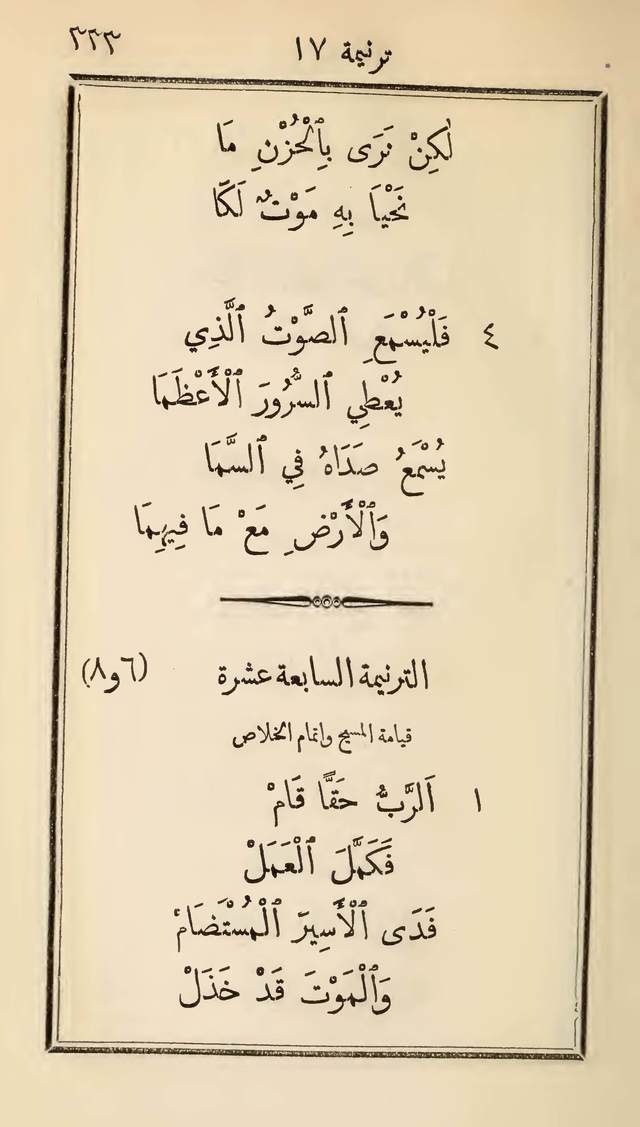 ترنيمة ١٧ ٣٣٣
لٰكِنْ نَرَى بِٱلْحُزْنِ مَا
نَحْيَا بِهِ مَوْتٌ لَكَا
٤ فَلْيُسْمَعِ ٱلصَّوْتُ ٱلَّذِي
يُعْطِي ٱلسُّرُورَ ٱلْأَعْظَمَا
يُسْمَعُ صَدَاهُ فِي ٱلسَّمَا
وَٱلْأَرْضِ مَعْ مَا فِيهِمَا
الترنيمة السابعة عشرة (٦و٨)
قيامة المسيح واتمام الخلاص
١ اَلرَّبُّ حَقًّا قَامْ
فَكَمَّلَ ٱلْعَمَلْ
فَدَى ٱلْأَسِيرَ ٱلْمُسْتَضَامْ
وَٱلْمَوْتَ قَدْ خَذَلْ